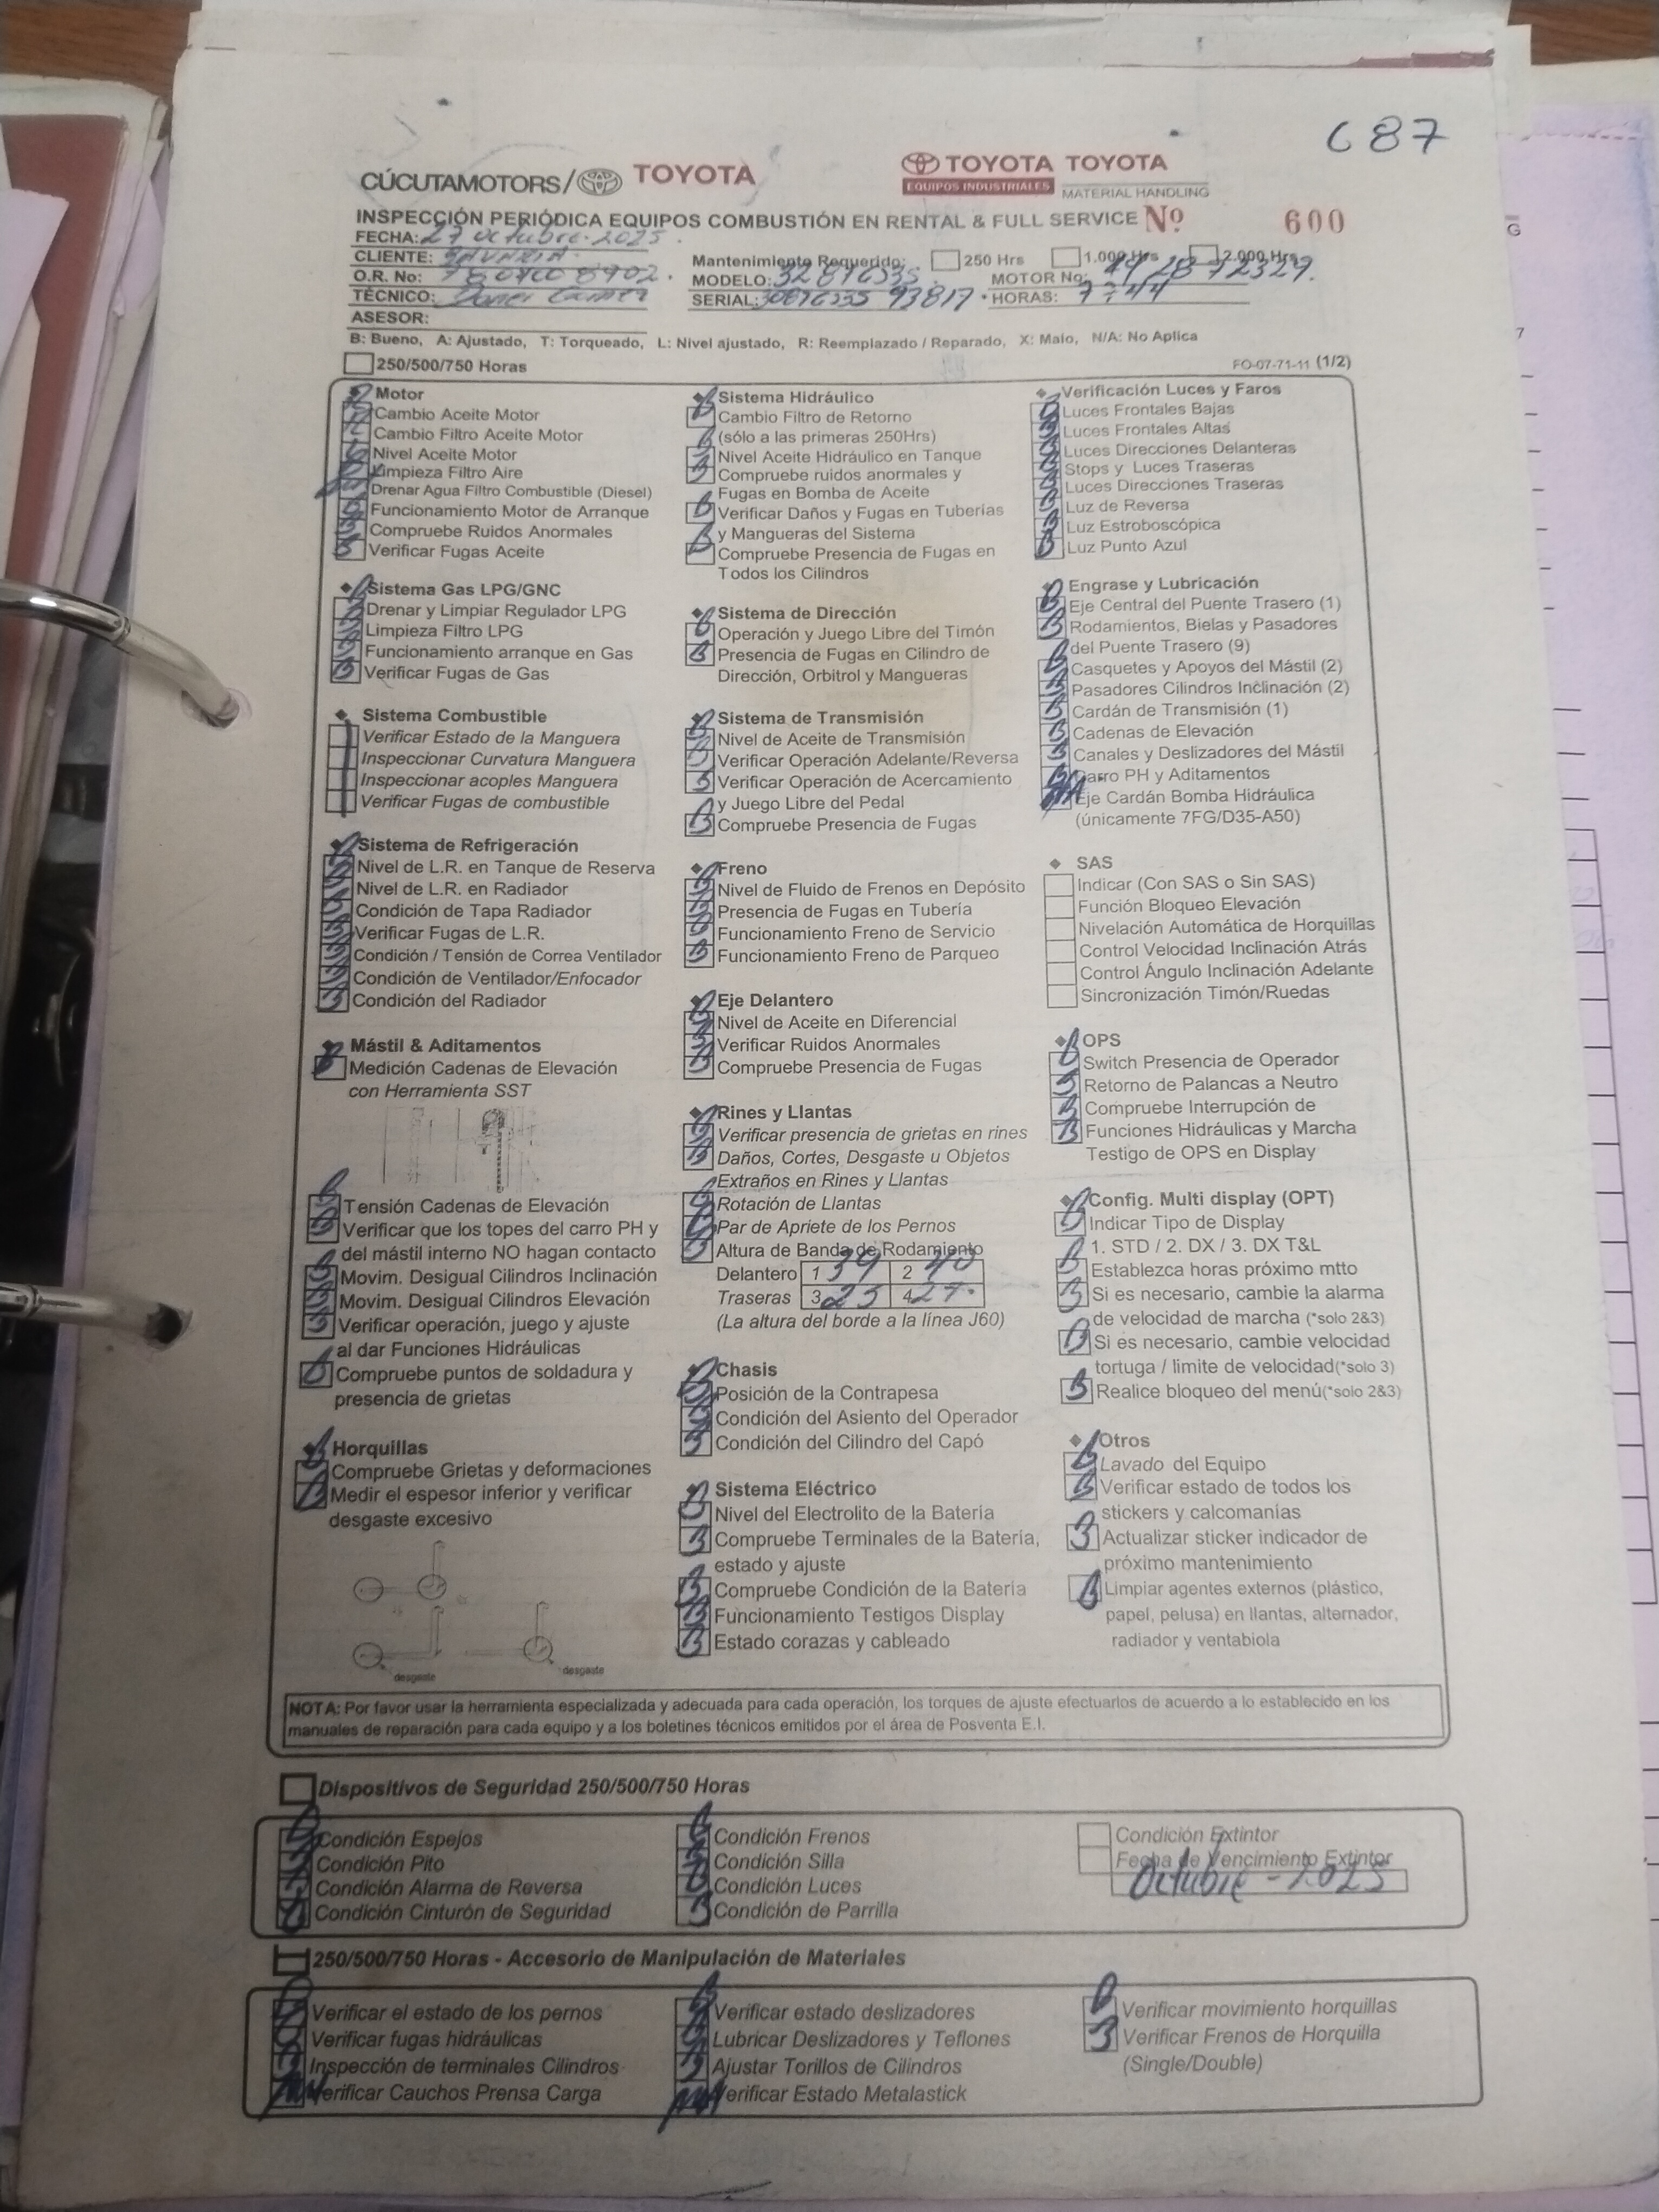 687
CÚCUTAMOTORS/ TOYOTA
TOYOTA TOYOTA
EQUIPOS INDUSTRIALES MATERIAL HANDLING
INSPECCIÓN PERIÓDICA EQUIPOS COMBUSTIÓN EN RENTAL & FULL SERVICE Nº 600
FECHA: 27 octubre-2025.
CLIENTE: Mantenimiento Requerido: 250 Hrs 1.000 Hrs 2.000 Hrs
O.R. No: MODELO: MOTOR No:
TÉCNICO: SERIAL: 93817 HORAS: 7744
ASESOR:
B: Bueno, A: Ajustado, T: Torqueado, L: Nivel ajustado, R: Reemplazado / Reparado, X: Malo, N/A: No Aplica
250/500/750 Horas FO-07-71-11 (1/2)
Motor
Cambio Aceite Motor
Cambio Filtro Aceite Motor
Nivel Aceite Motor
Limpieza Filtro Aire
Drenar Agua Filtro Combustible (Diesel)
Funcionamiento Motor de Arranque
Compruebe Ruidos Anormales
Verificar Fugas Aceite
Sistema Gas LPG/GNC
Drenar y Limpiar Regulador LPG
Limpieza Filtro LPG
Funcionamiento arranque en Gas
Verificar Fugas de Gas
Sistema Combustible
Verificar Estado de la Manguera
Inspeccionar Curvatura Manguera
Inspeccionar acoples Manguera
Verificar Fugas de combustible
Sistema de Refrigeración
Nivel de L.R. en Tanque de Reserva
Nivel de L.R. en Radiador
Condición de Tapa Radiador
Verificar Fugas de L.R.
Condición / Tensión de Correa Ventilador
Condición de Ventilador/Enfocador
Condición del Radiador
Mástil & Aditamentos
Medición Cadenas de Elevación
con Herramienta SST
Tensión Cadenas de Elevación
Verificar que los topes del carro PH y
del mástil interno NO hagan contacto
Movim. Desigual Cilindros Inclinación
Movim. Desigual Cilindros Elevación
Verificar operación, juego y ajuste
al dar Funciones Hidráulicas
Compruebe puntos de soldadura y
presencia de grietas
Horquillas
Compruebe Grietas y deformaciones
Medir el espesor inferior y verificar
desgaste excesivo
desgaste
desgaste
Sistema Hidráulico
Cambio Filtro de Retorno
(sólo a las primeras 250Hrs)
Nivel Aceite Hidráulico en Tanque
Compruebe ruidos anormales y
Fugas en Bomba de Aceite
Verificar Daños y Fugas en Tuberías
y Mangueras del Sistema
Compruebe Presencia de Fugas en
Todos los Cilindros
Sistema de Dirección
Operación y Juego Libre del Timón
Presencia de Fugas en Cilindro de
Dirección, Orbitrol y Mangueras
Sistema de Transmisión
Nivel de Aceite de Transmisión
Verificar Operación Adelante/Reversa
Verificar Operación de Acercamiento
y Juego Libre del Pedal
Compruebe Presencia de Fugas
Freno
Nivel de Fluido de Frenos en Depósito
Presencia de Fugas en Tubería
Funcionamiento Freno de Servicio
Funcionamiento Freno de Parqueo
Eje Delantero
Nivel de Aceite en Diferencial
Verificar Ruidos Anormales
Compruebe Presencia de Fugas
Rines y Llantas
Verificar presencia de grietas en rines
Daños, Cortes, Desgaste u Objetos
Extraños en Rines y Llantas
Rotación de Llantas
Par de Apriete de los Pernos
Altura de Banda de Rodamiento
Delantero 1 39 2 40
Traseras 3 25 4 27.
(La altura del borde a la línea J60)
Chasis
Posición de la Contrapesa
Condición del Asiento del Operador
Condición del Cilindro del Capó
Sistema Eléctrico
Nivel del Electrolito de la Batería
Compruebe Terminales de la Batería,
estado y ajuste
Compruebe Condición de la Batería
Funcionamiento Testigos Display
Estado corazas y cableado
Verificación Luces y Faros
Luces Frontales Bajas
Luces Frontales Altas
Luces Direcciones Delanteras
Stops y Luces Traseras
Luces Direcciones Traseras
Luz de Reversa
Luz Estroboscópica
Luz Punto Azul
Engrase y Lubricación
Eje Central del Puente Trasero (1)
Rodamientos, Bielas y Pasadores
del Puente Trasero (9)
Casquetes y Apoyos del Mástil (2)
Pasadores Cilindros Inclinación (2)
Cardán de Transmisión (1)
Cadenas de Elevación
Canales y Deslizadores del Mástil
Carro PH y Aditamentos
Eje Cardán Bomba Hidráulica
(únicamente 7FG/D35-A50)
SAS
Indicar (Con SAS o Sin SAS)
Función Bloqueo Elevación
Nivelación Automática de Horquillas
Control Velocidad Inclinación Atrás
Control Ángulo Inclinación Adelante
Sincronización Timón/Ruedas
OPS
Switch Presencia de Operador
Retorno de Palancas a Neutro
Compruebe Interrupción de
Funciones Hidráulicas y Marcha
Testigo de OPS en Display
Config. Multi display (OPT)
Indicar Tipo de Display
1. STD / 2. DX / 3. DX T&L
Establezca horas próximo mtto
Si es necesario, cambie la alarma
de velocidad de marcha (*solo 2&3)
Si es necesario, cambie velocidad
tortuga / limite de velocidad(*solo 3)
Realice bloqueo del menú(*solo 2&3)
Otros
Lavado del Equipo
Verificar estado de todos los
stickers y calcomanías
Actualizar sticker indicador de
próximo mantenimiento
Limpiar agentes externos (plástico,
papel, pelusa) en llantas, alternador,
radiador y ventabiola
NOTA: Por favor usar la herramienta especializada y adecuada para cada operación, los torques de ajuste efectuarlos de acuerdo a lo establecido en los
manuales de reparación para cada equipo y a los boletines técnicos emitidos por el área de Posventa E.I.
Dispositivos de Seguridad 250/500/750 Horas
Condición Espejos
Condición Pito
Condición Alarma de Reversa
Condición Cinturón de Seguridad
Condición Frenos
Condición Silla
Condición Luces
Condición de Parrilla
Condición Extintor
Fecha de Vencimiento Extintor
Octubre - 2025
250/500/750 Horas - Accesorio de Manipulación de Materiales
Verificar el estado de los pernos
Verificar fugas hidráulicas
Inspección de terminales Cilindros
Verificar Cauchos Prensa Carga
Verificar estado deslizadores
Lubricar Deslizadores y Teflones
Ajustar Torillos de Cilindros
Verificar Estado Metalastick
Verificar movimiento horquillas
Verificar Frenos de Horquilla
(Single/Double)